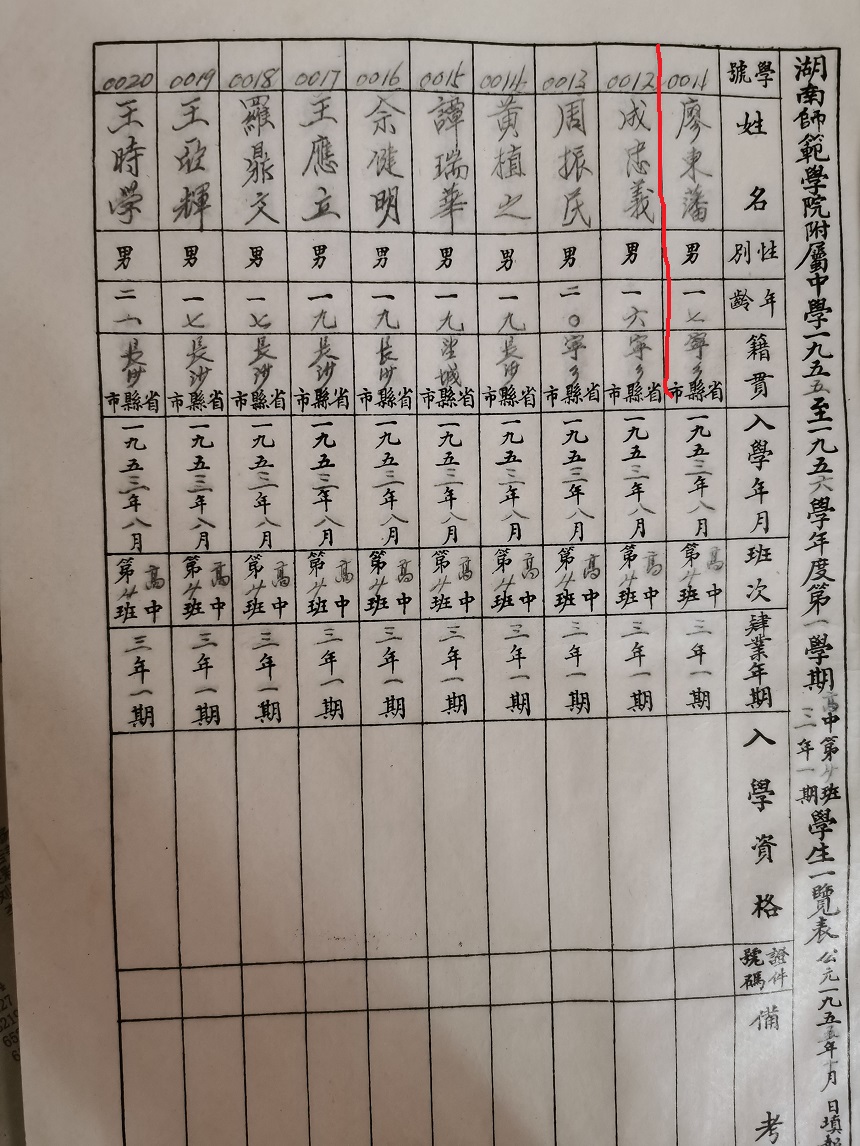 湖南師範學院附屬中學一九五五至一九五六學年度第一學期高中第廿班三年一期學生一覽表 公元一九五五年十月 日填
學號 姓名 性別 年齡 籍貫 入學年月 班次 肄業年期 入學資格 證件號碼 備考
0011 廖東藩 男 一七 寧乡 省縣市 一九五三年八月 高中第廿班 三年一期
0012 成忠義 男 一六 寧乡 省縣市 一九五三年八月 高中第廿班 三年一期
0013 周振民 男 二〇 寧乡 省縣市 一九五三年八月 高中第廿班 三年一期
0014 黃植之 男 一九 長沙 省縣市 一九五三年八月 高中第廿班 三年一期
0015 譚瑞華 男 一九 望城 省縣市 一九五三年八月 高中第廿班 三年一期
0016 余健明 男 一九 長沙 省縣市 一九五三年八月 高中第廿班 三年一期
0017 王應立 男 一九 長沙 省縣市 一九五三年八月 高中第廿班 三年一期
0018 羅鼎文 男 一七 長沙 省縣市 一九五三年八月 高中第廿班 三年一期
0019 王啟輝 男 一七 長沙 省縣市 一九五三年八月 高中第廿班 三年一期
0020 王時學 男 二一 長沙 省縣市 一九五三年八月 高中第廿班 三年一期